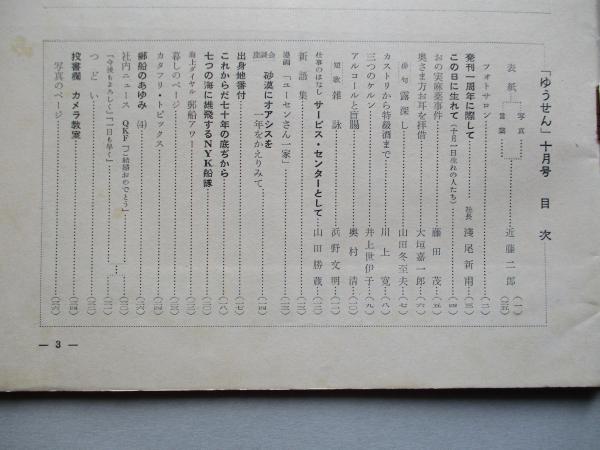 「ゆうせん」十月号　目次
表紙 写真 近藤二郎 (一)
言葉 (五)
フォトサロン (二)
発刊一周年に際して 社長 淺尾新甫 (三)
この日に生れて (十月一日生れの人たち) (四)
おの実麻薬事件 藤田茂 (五)
奥さま方お耳を拝借 大垣嘉一郎 (六)
俳句 露深し 山田冬至夫 (七)
カストリから特級酒まで 川上寛 (八)
三つのケルン 井上世伊子 (九)
アルコールと盲腸 奥村清
短歌 雑詠 浜野文明
仕事のはなし サービス・センターとして 山田勝蔵
新語集
漫画 「ユーセンさん一家」
座談会 砂漠にオアシスを
一年をかえりみて
出身地番付
これからだ七十年の底ぢから
七つの海に雄飛するNYK船隊
海上ダイヤル 郵船アワー
暮しのページ
カタフリ・トピックス
郵船のあゆみ (4)
社内ニュース QKF「ご結婚おめでとう」
「今後もよろしく」「一日も早く」
つどい
投書欄 カメラ教室
写真のページ
— 3 —